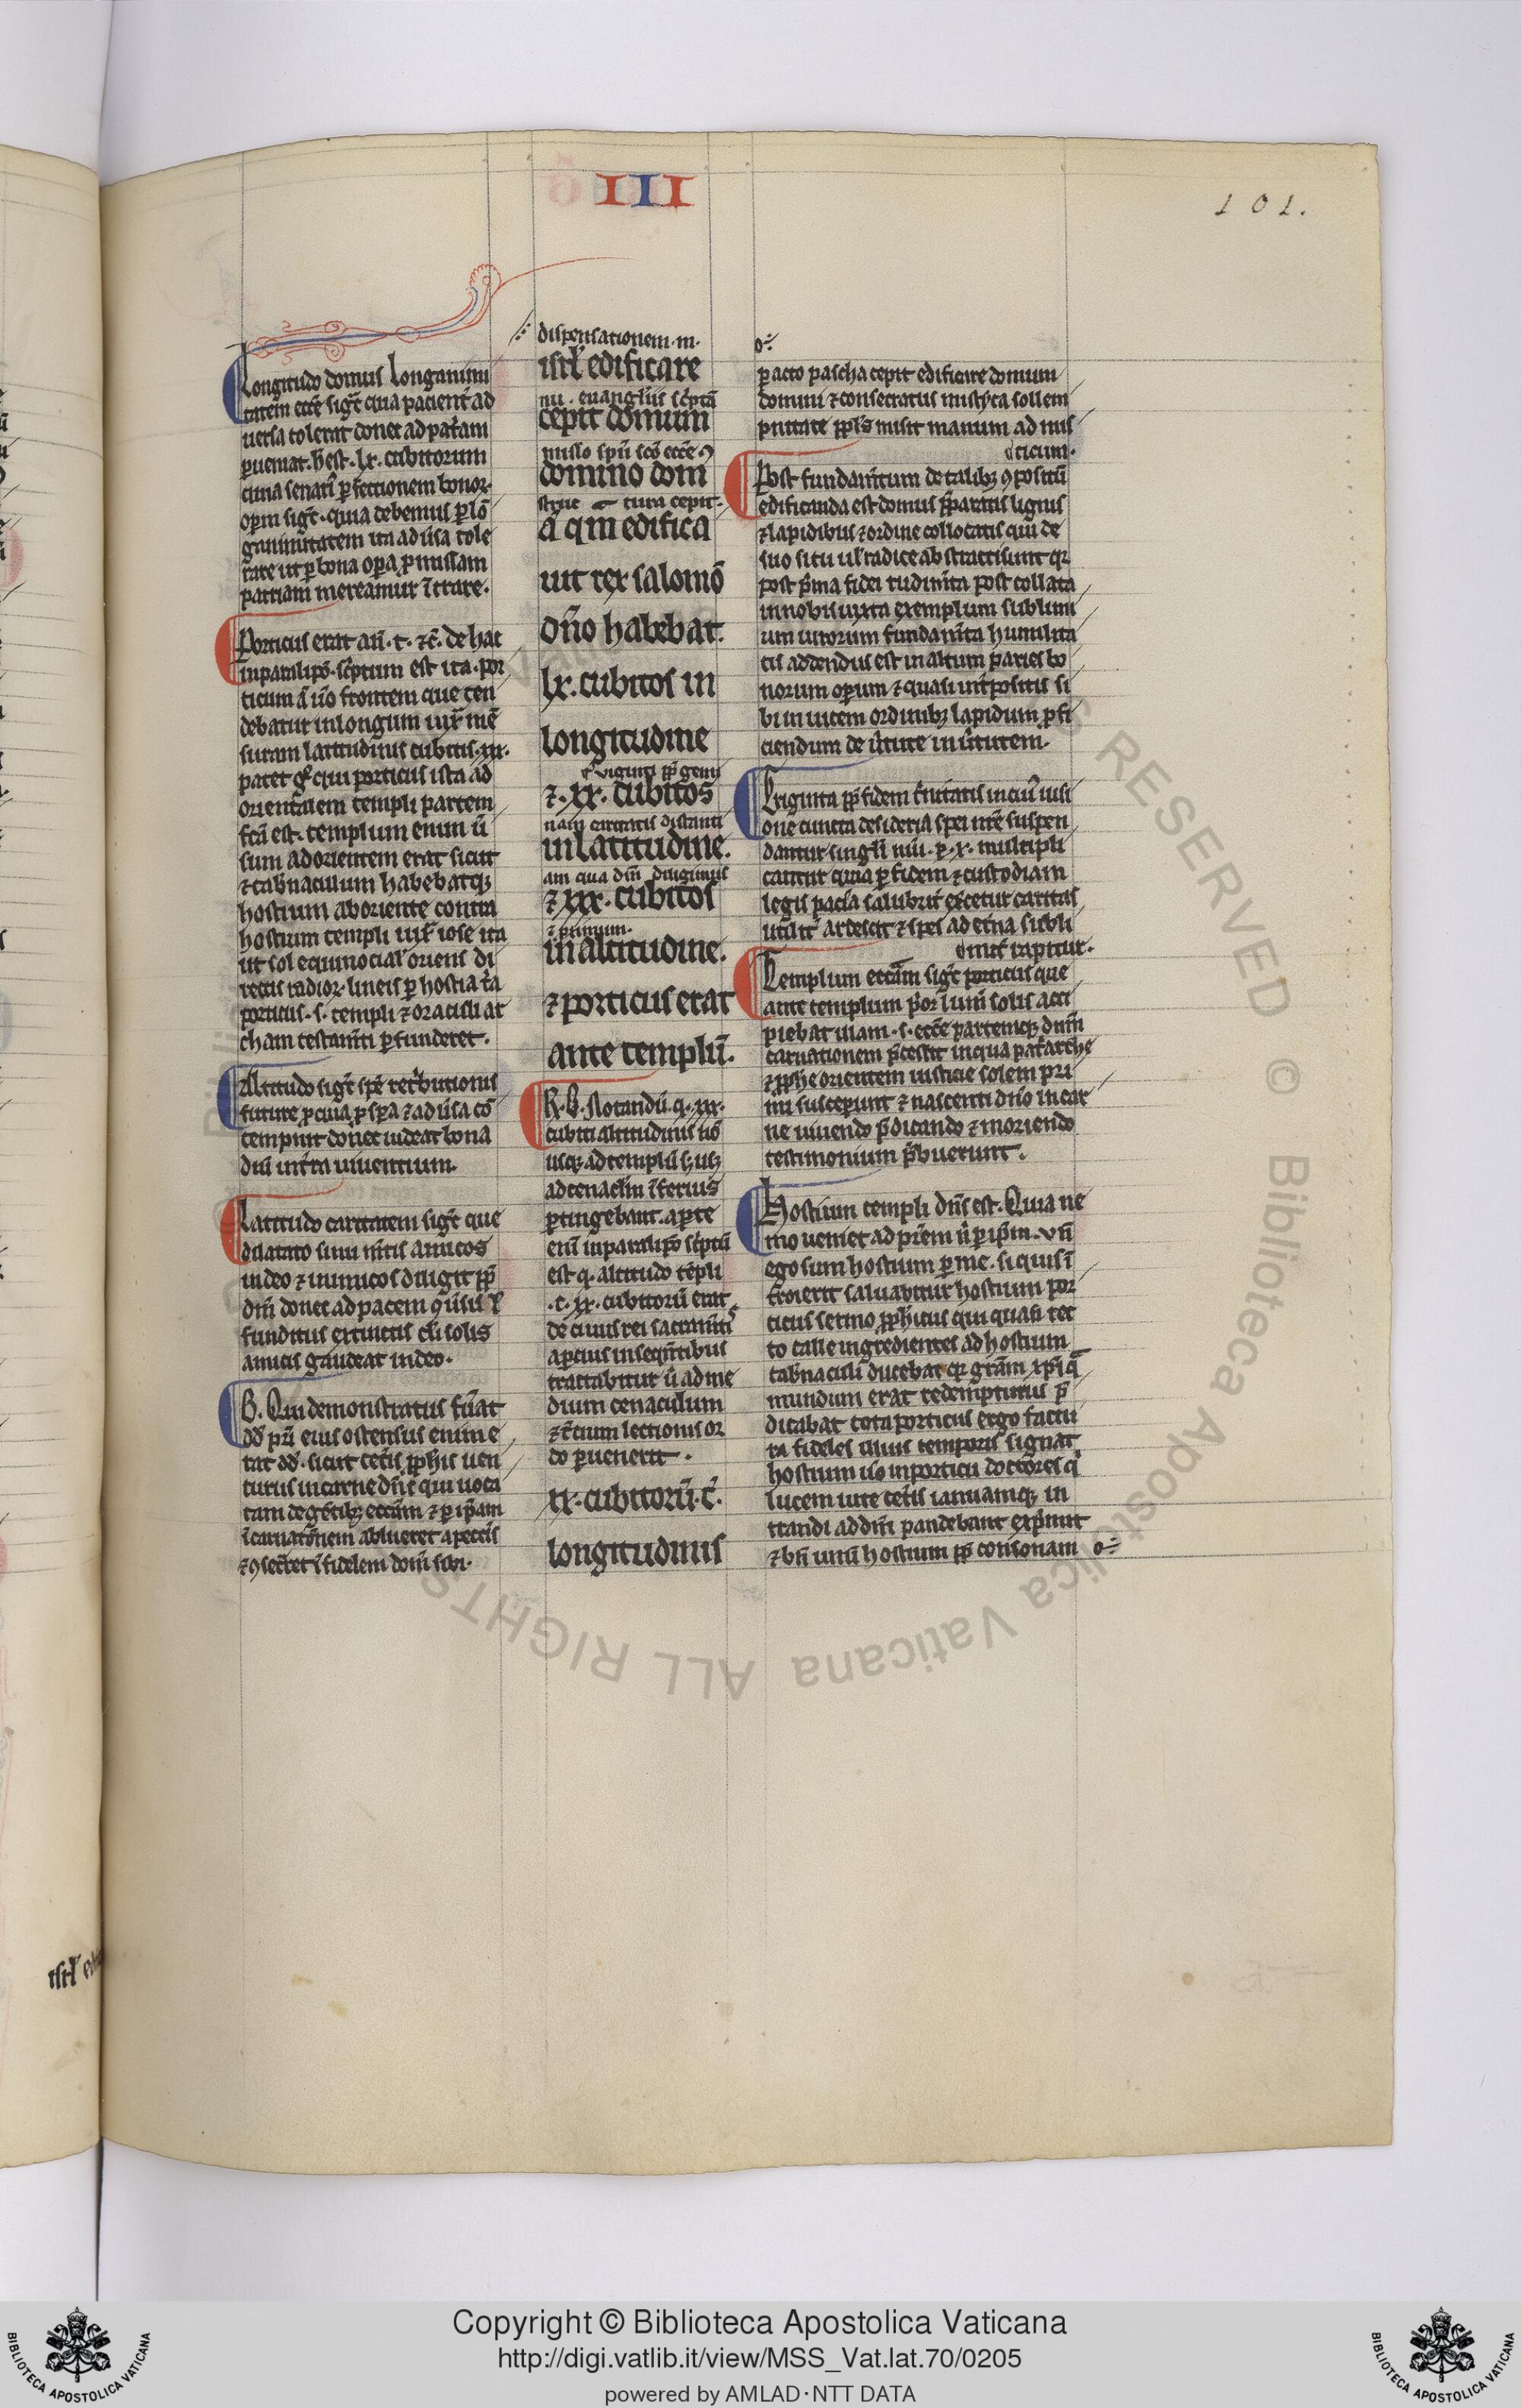 III
101.
Longitudo domus longanimi
tatem ecc̄e sigt̄ qua pacient̾ ad
uersa tolerat donec ad pat̾am
ꝑueniat. h̄ est .lx. cubitorum
quia senarī ꝑfectionem bonoꝝ
oꝑum sigt̄. quia debemus ꝑ lō
ganimitatem ita aduīsa tole
rare ut ꝑ bona oꝑa ꝓmissam
patriam mereamur ī̄trare.
Porticus erat an̄. t. ⁊c̄. de hac
in paralipō. sc̄ptum est ita. por
ticum ā uō frontem que ten
debatur in longum iux̄ mē
suram latitudinis cubitis .xx.
patet gͦ qui porticus ista ad
orientalem templi partem
fc̄a est. templum enim ū̄
sum ad orientem erat sicut
⁊ tab̄naculum habebatqꝫ
hostium ab oriente contra
hostium templi iux̄ iose ita
ut sol equinocial̾ oriens di
rectis radioꝝ lineis ꝑ hostia t̄a
porticus .s. templi ⁊ oraculi ar
cham testam̄ti ꝑfunderet.
Altitudo sigt̄ spē ret̾butionis
future ꝓ qua ꝓspa ⁊ aduīsa cō
tempnit donec uideat bona
dn̄i in t̄ra uiuentium.
Latitudo caritatem sigt̄ que
dilatato sinu m̄tis amicos
in deo ⁊ inimicos diligit ꝓp̄
dm̄ donec ad pacem ꝯuīsis ł
funditus extinctis cū̄ solis
amicis gaudeat in deo.
B. Qui demonstratus fūat
dd̄ pr̄i eius ostensus enim e
rat dd̄. sicut cet̾is ꝓph̾is uen
turus in carne dn̄s qui uoca
tam de gētibꝫ ecc̄am ⁊ ꝑ ip̄am
ī̄carnatōnem ablueret a peccīs
⁊ ꝯsec̾ret ī̄ fidelem domū sibi.
dispensationem .m.
isrł edificare
nū. euanglīis sc̄ptū
cepit domum
misso spū sc̄o ecc̄e ꝯ
domino dom
struc tura cepit.
ā qm̄ edifica
uit rex salomō
dn̄o habebat.
lx. cubitos in
longitudine
viginti ꝓp̄ gemi
⁊ .xx. cubitos
nam caritatis distanti
in latitudine.
am qua dm̄ diligimus
⁊ xxx. cubitos
⁊ ꝓximum.
in altitudine.
⁊ porticus erat
ante templū.
R. B. Notandū. q. xxx.
cubiti altitudinis nō
usqꝫ ad templū sꝫ usqꝫ
ad cenaclm̄ ī̄ferius
ꝑtingebant. aꝑte
enī in paralipō sc̄ptū
est q. altitudo tēpli
.c. xx. cubitorū erat
de cuius rei sacram̄tis
aꝑcius in seqūtibus
tractabitur ū̄ ad me
dium cenaculum
⁊ t̾cium lectionis or
do ꝑuenerit.
xx. cubitorū. t̾.
longitudinis
ꝑacto pascha cepit edificare domum
domini ⁊ consecratus mistica sollem
pnitate ppl̄s misit manum ad mis
ticum.
Post fundam̄tum de talibꝫ ꝯpositū
edificanda est domus p̄paratis lignis
⁊ lapidibus ⁊ ordine collocatis qui de
suo situ ul̾ radice abstracti sunt qꝛ
post p̄ma fidei rudim̄ta post collata
in nobis iuxta exemplum sublimi
um uirorum fundam̄ta humilita
tis addendus est in altum paries bo
norum oꝑum ⁊ quasi int̾positis si
bi inuicem ordinibꝫ lapidum ꝓfi
ciendum de uīrtute in uīrtutem.
Triginta ꝓp̄ fidem t̾nitatis in cuiꝰ uisi
one cuncta desideria spei nr̄e suspen
dantur singlī niū. ꝑ. x. multipli
cantur quia ꝑ fidem ⁊ custodiam
legis pacīa salubrit̾ ex̾cetur caritas
utilit̾ ardescit ⁊ spes ad et̾na subli
mit̾ rapitur.
Templum ecc̄am sigt̄ porticus que
ante templum p̾or lum̄ solis acci
piebat illam .s. ecc̄e partemqꝫ dn̄m
carnationem p̄cessit in qua pat̾arche
⁊ ꝓph̾e orientem iusticie solem pri
mi susceperunt ⁊ nascenti dn̄o in car
ne uiuendo p̄dicando ⁊ moriendo
testimonium p̄buerunt.
Hostium templi dn̄s est. Quia ne
mo ueniet ad pr̄em n̄ ꝑ ip̄m. vn̄
ego sum hostium ꝑ me. si quis ī̄
troierit saluabitur hostium por
ticus sermo ꝓph̾icus qui quasi rec
to calle ingredientes ad hostium
tab̄naculi ducebat qꝛ gr̄am xp̄i q̄
mundum erat redempturus p̄
dicabat tota porticus ergo factu
ra fideles illius temporis signat
hostium uō in porticu doctores qi
lucem uite cet̾is ianuamqꝫ in
trandi ad dm̄ pandebant exp̾mit
⁊ bn̄ unū hostium ꝓp̄ consonam
isrł edi
Copyright © Biblioteca Apostolica Vaticana
http://digi.vatlib.it/view/MSS_Vat.lat.70/0205
powered by AMLAD·NTT DATA
BIBLIOTECA APOSTOLICA VATICANA
BIBLIOTECA APOSTOLICA VATICANA
© Biblioteca Apostolica Vaticana ALL RIGHTS RESERVED